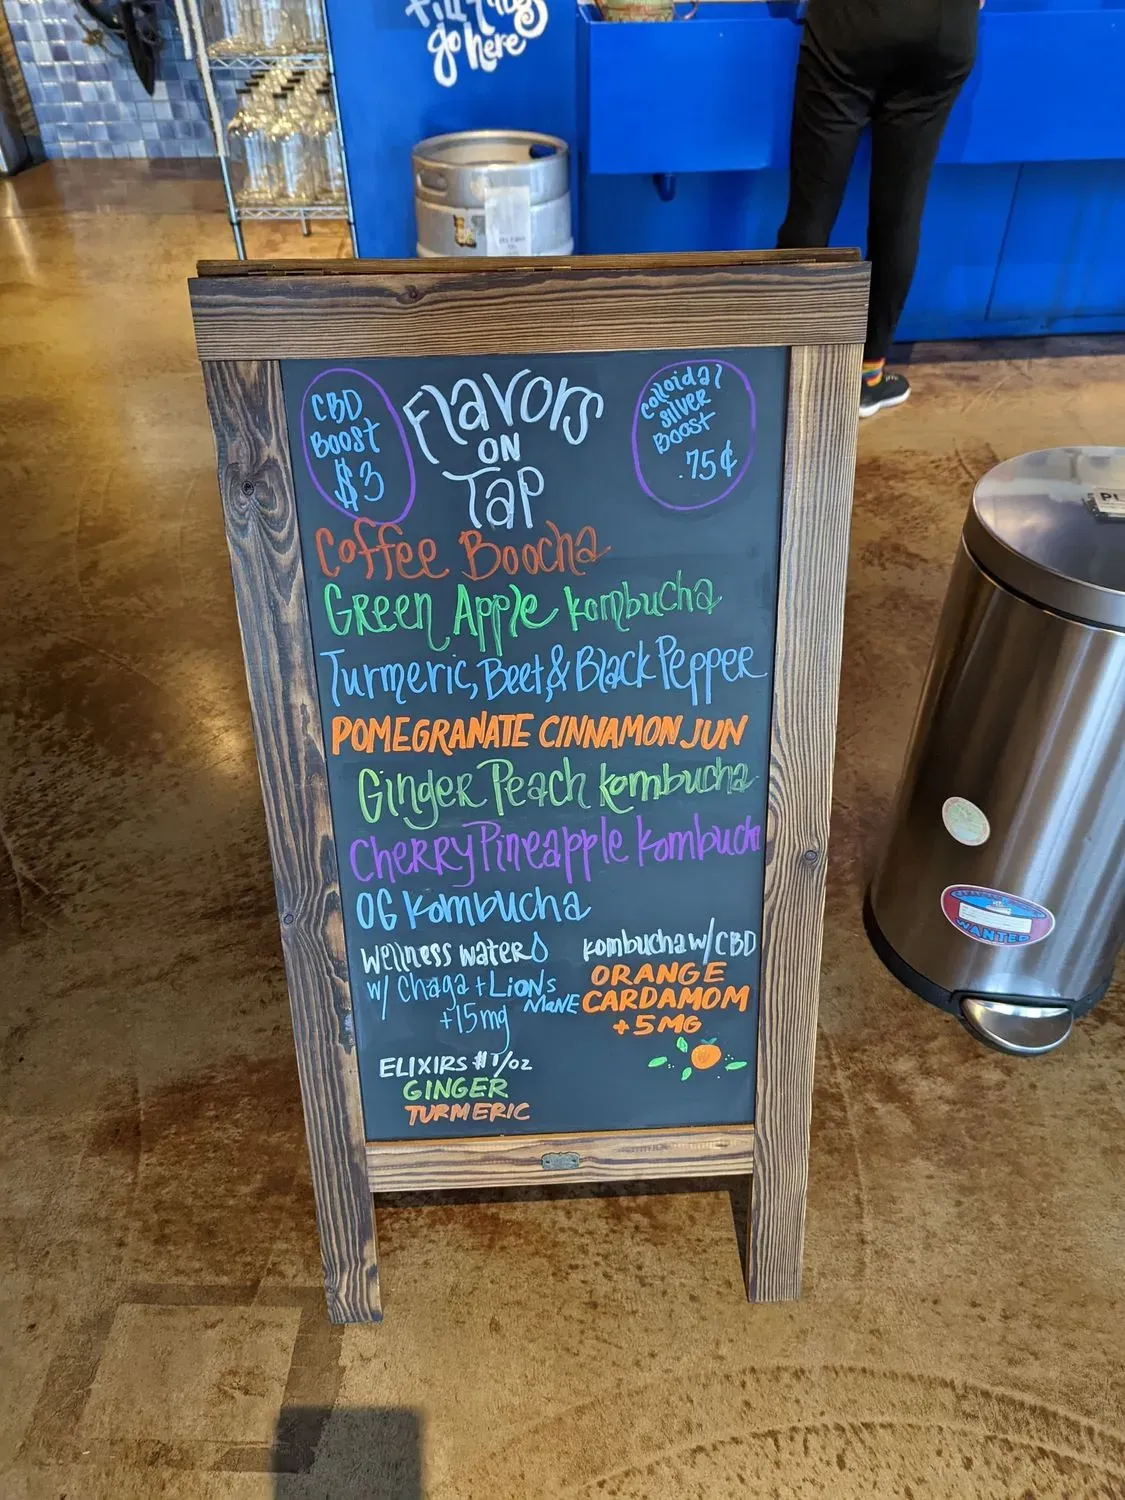 go here
CBD
Boost
$3
Flavors
ON
Tap
Colloidal
Silver
Boost
.75¢
Coffee Boocha
Green Apple Kombucha
Turmeric, Beet & Black Pepper
POMEGRANATE CINNAMON JUN
Ginger Peach Kombucha
Cherry Pineapple Kombucha
OG Kombucha
Wellness Water
w/ Chaga + Lions
Mane
+15mg
Kombucha w/ CBD
ORANGE
CARDAMOM
+5MG
ELIXIRS $1/oz
GINGER
TURMERIC
WANTED